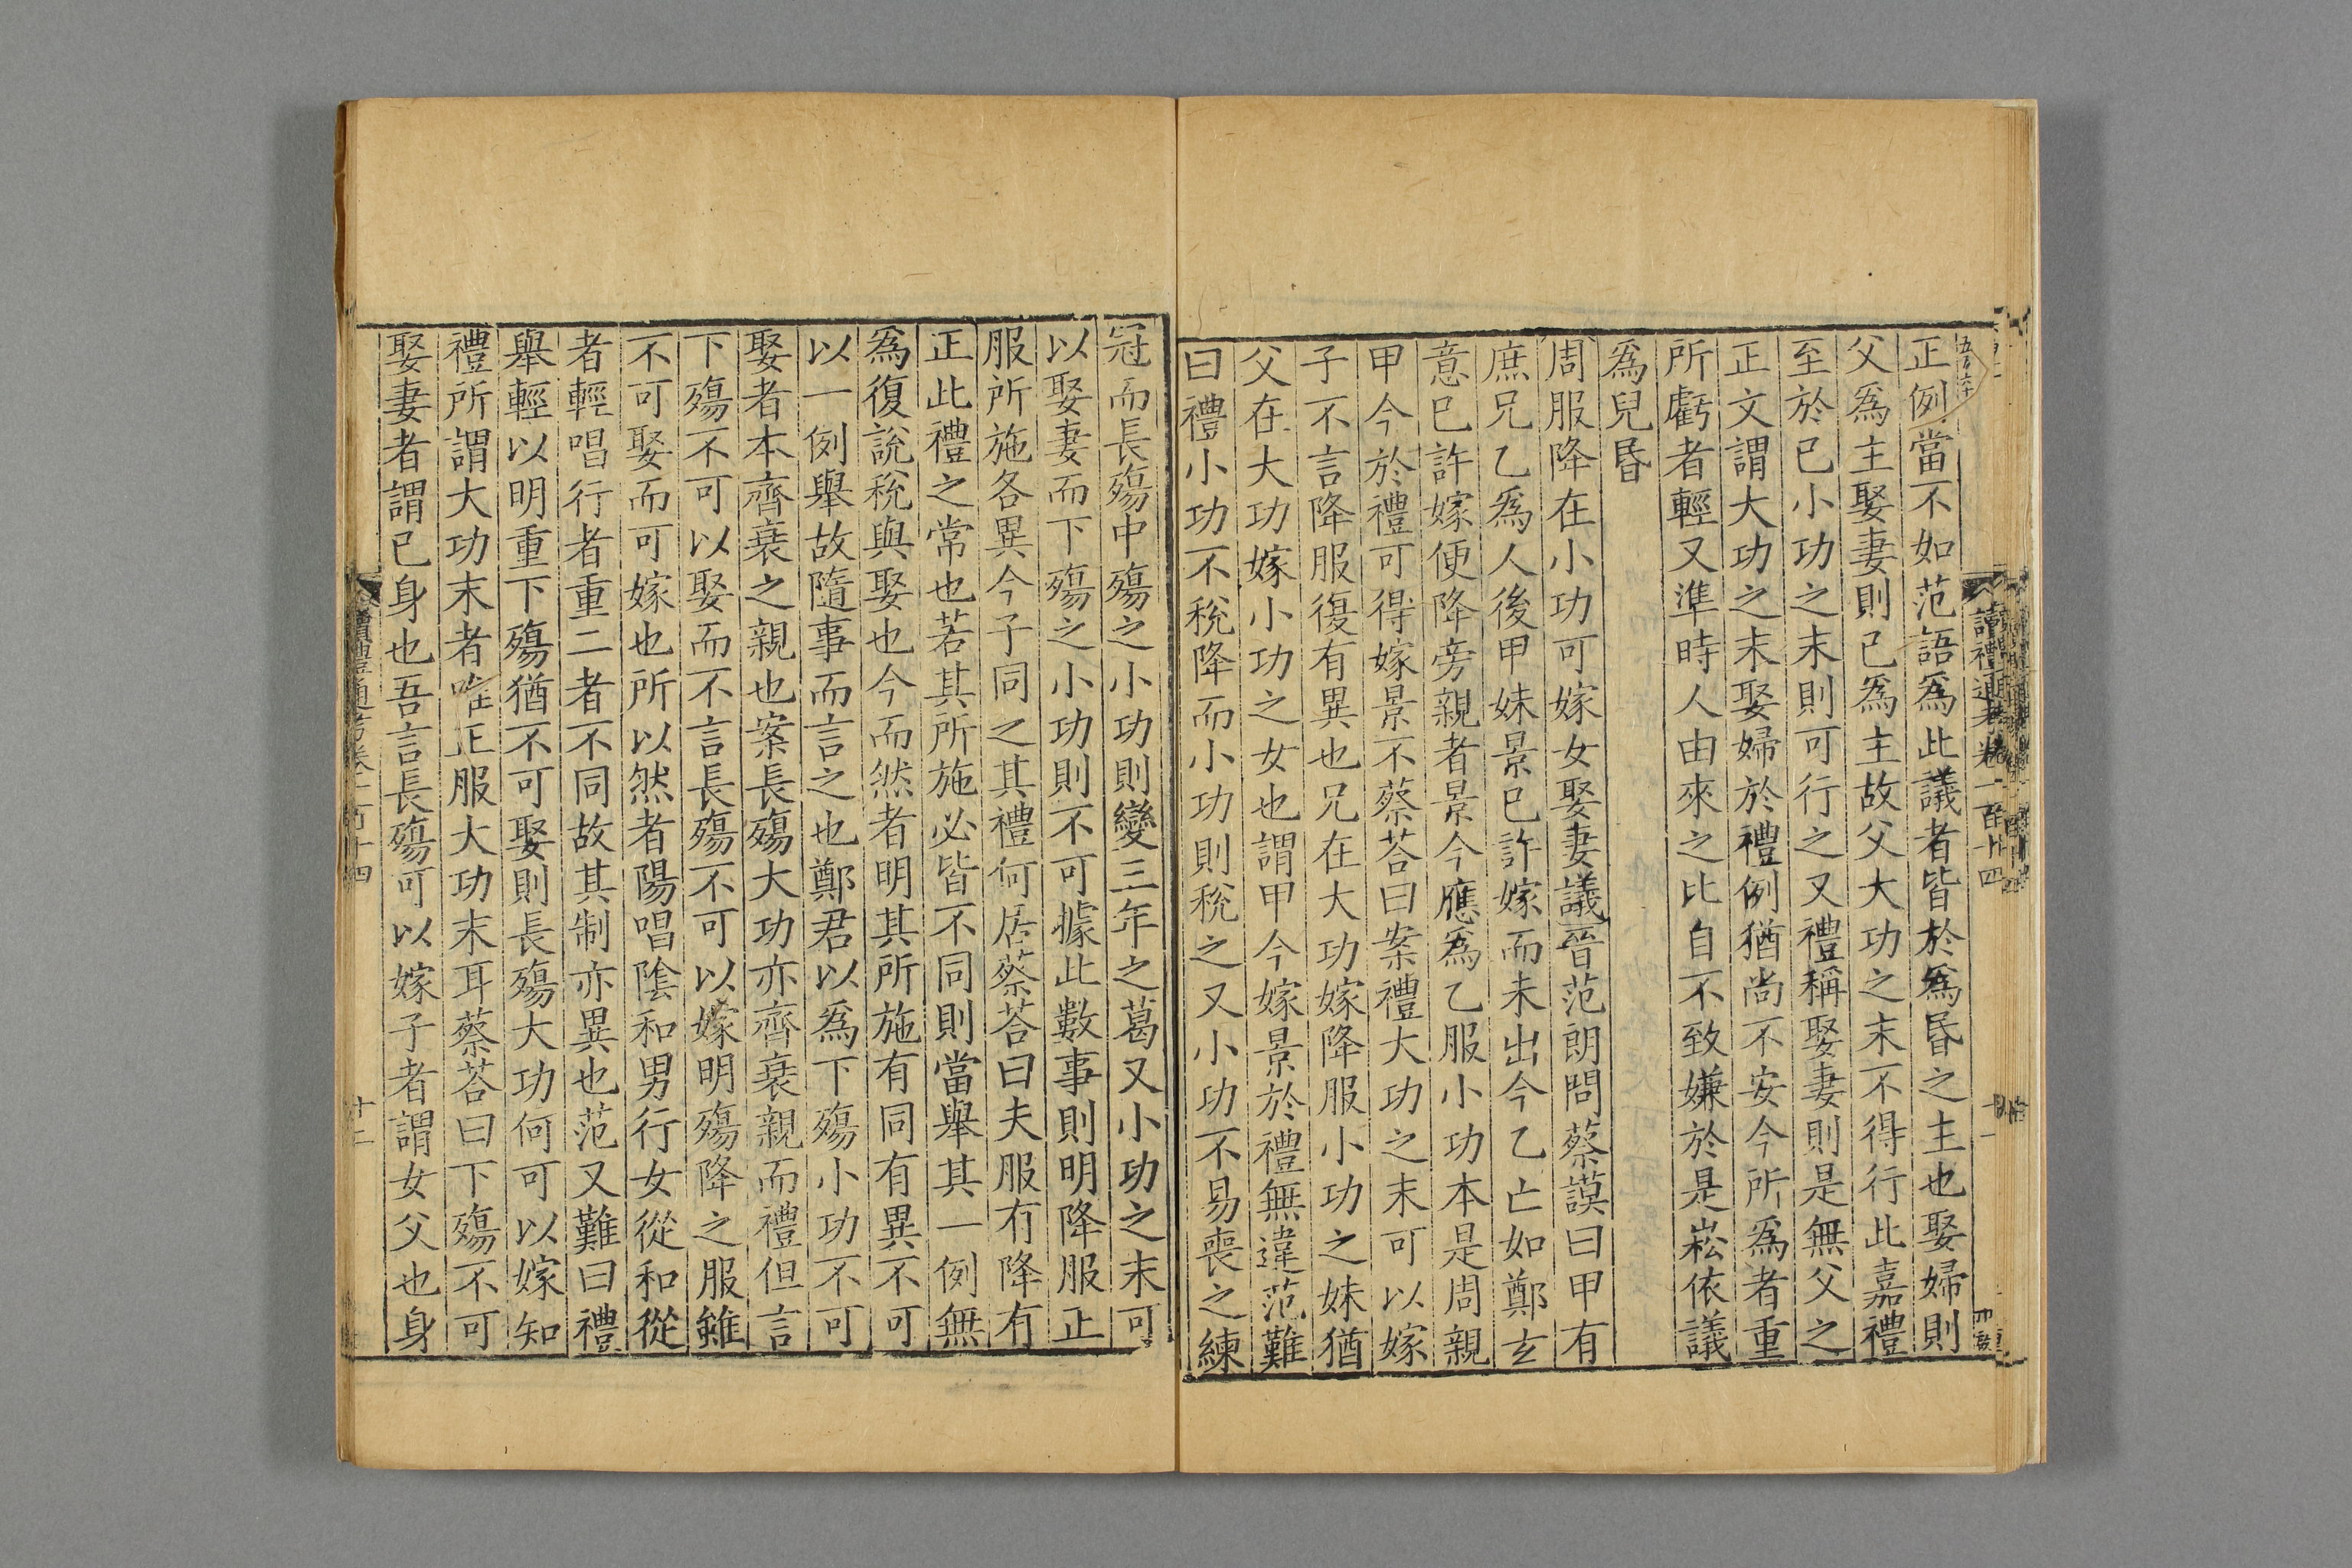 正例當不如范語爲此議者皆於爲昏之主也娶婦則
父爲主娶妻則已爲主故父大功之末不得行此嘉禮
至於已小功之末則可行之又禮稱娶妻則是無父之
正文謂大功之末娶婦於禮例猶尚不安今所爲者重
所虧者輕又準時人由來之比自不致嫌於是崧依議
爲兒昏
周服降在小功可嫁女娶妻議晉范朗問蔡謨曰甲有
庶兄乙爲人後甲妹景已許嫁而未出今乙亡如鄭玄
意已許嫁便降旁親者景今應爲乙服小功本是周親
甲今於禮可得嫁景不蔡荅曰案禮大功之末可以嫁
子不言降服復有異也兄在大功嫁降服小功之妹猶
父在大功嫁小功之女也謂甲今嫁景於禮無違范難
曰禮小功不稅降而小功則稅之又小功不易喪之練
冠而長殤中殤之小功則變三年之葛又小功之末可
以娶妻而下殤之小功則不可據此數事則明降服正
服所施各異今子同之其禮何居蔡荅曰夫服有降有
正此禮之常也若其所施必皆不同則當舉其一例無
爲復說稅與娶也今而然者明其所施有同有異不可
以一例舉故隨事而言之也鄭君以爲下殤小功不可
娶者本齊衰之親也案長殤大功亦齊衰親而禮但言
下殤不可以娶而不言長殤不可以嫁明殤降之服雖
不可娶而可嫁也所以然者陽唱陰和男行女從和從
者輕唱行者重二者不同故其制亦異也范又難曰禮
舉輕以明重下殤猶不可娶則長殤大功何可以嫁知
禮所謂大功末者唯正服大功末耳蔡荅曰下殤不可
娶妻者謂已身也吾言長殤可以嫁子者謂女父也身
讀禮通考卷一百十四
十二